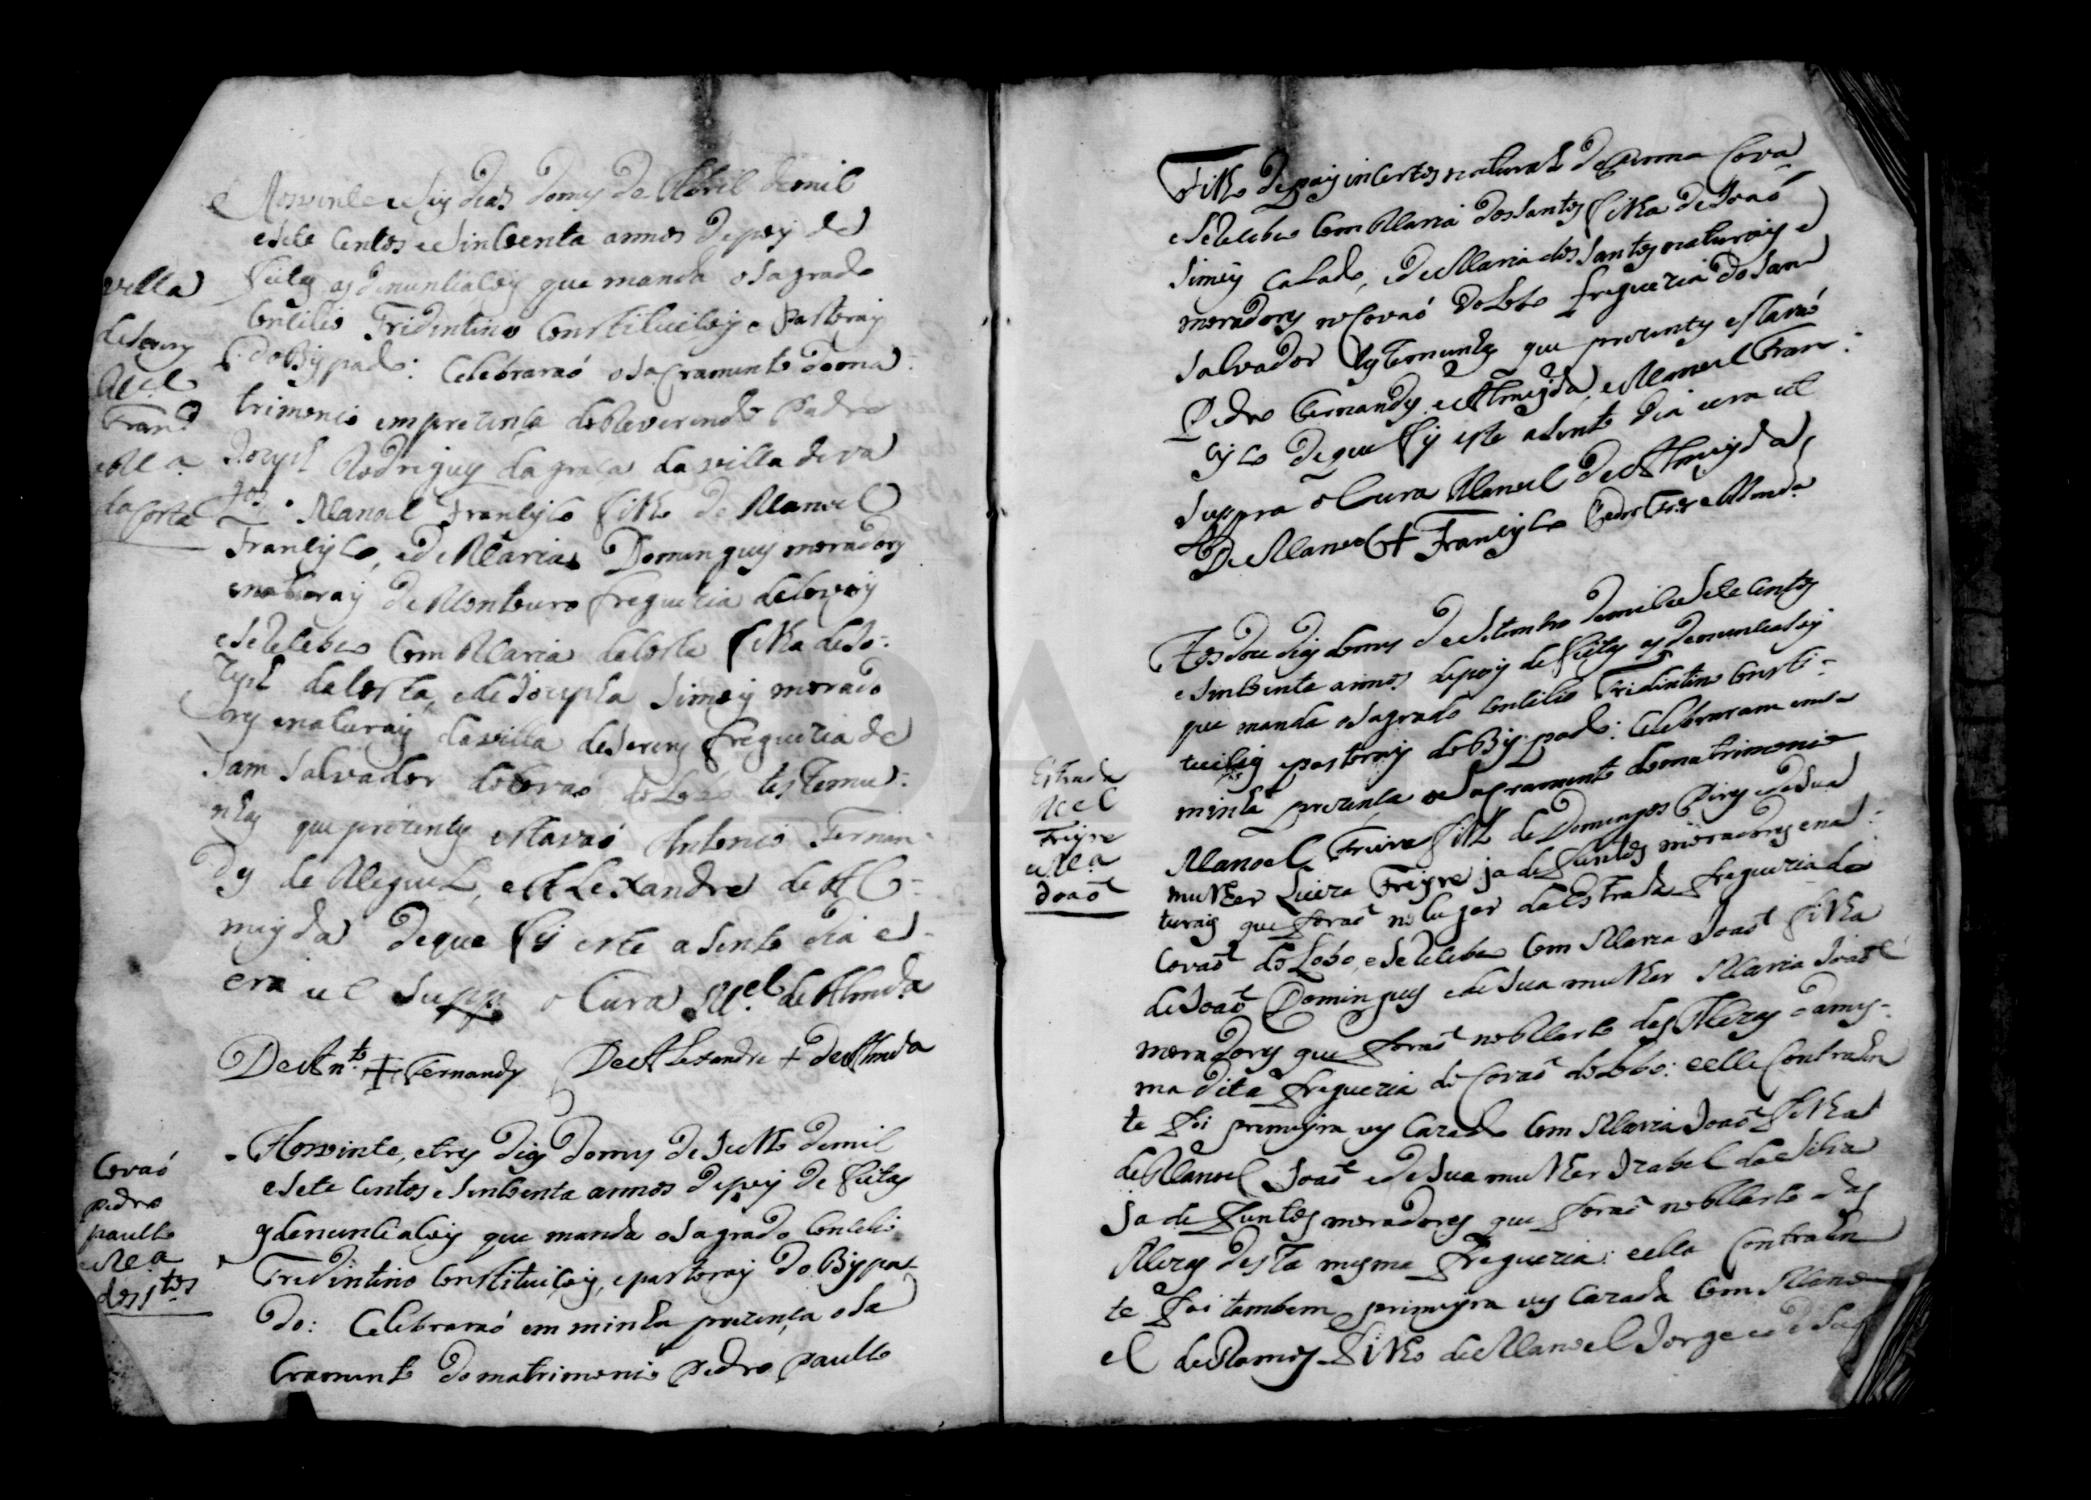 villa
de Seruy
M.el
Fran.co
e M.a
da Costa
Aos vinte e seis dias do mes de Abril de mil
e sete centos e sincoenta annos depois de
feitas as denunciasois que manda o sagrado
Concilio Tridintino Constituicois e Pastorais
do Bispado: Celebraraó o sacramento do ma-
trimonio em prezensa do Reverendo Padre
Jozeph Rodrigues da graca da villa de va
gos. Manoel Francisco filho de Manoel
Francisco, e de Maria Domingues moradores
e naturais de Montouro freguezia de Covois
e se recebeo Com Maria da Costa filha de Jo-
zeph da Costa, e de Jozepha Simois morado
res e naturais da villa de Seruy freguezia de
Sam Salvador do Covaó do Lobo testemu-
nhas que prezentes estavaó Antonio Fernan-
des de Miguel, e Alexandre de Al-
meyda de que fis este asento dia e
era ut supp o Cura M.el de Almd.a
De An.to + Fernandes De Alexandre + de Almda
Covaó
Pedro
paullo
e M.a
dos S.tos
Aos vinte, e tres dias do mes de Julho de mil
e sete centos e sincoenta annos depois de feitas
as denunciasois que manda o sagrado Concilio
Tredintino Constituicois, e pastorais do Bispa-
do: Celebraraó em minha prezensa o Sa
cramento do matrimonio Pedro paullo
filho de pais incertos natural de Cova
e se recebeo Com Maria dos Santos filha de Joaó
Simois Calado, e de Maria dos Santos naturais e
moradores no Covaó do Lobo freguezia do Sam
Salvador testemunhas que prezentes estavaó
Pedro Fernandes de Almeyda, e Manoel Fran-
cisco de que fis este asento dia e era ut
supra o Cura Manoel de Almeyda
De Manoel + Francisco Pedro Frz e Almda
Estrada
M.el
Freyre
e M.a
Joaó
Aos doze dias do mes de Setembro de mil e sete Centos
e sincoenta annos depois de feitas as denunciasois
que manda o sagrado Concilio Tridintino Consti-
tuicois e pastorais do Bispado: Celebraram em
minha prezensa o sacramento do matrimonio
Manoel Freire filho de Domingos Pires e de sua
mulher Luiza Freyre ja defuntos moradores e na-
turais que foraó no lugar da Estrada freguezia do
Covaó do Lobo, e se recebeo Com Maria Joaó filha
de Joaó Domingues e de sua mulher Maria Joaó
moradores que foraó no Marco das Meyas da mes-
ma dita freguezia do Covaó do Lobo: e elle contrahen
te foi primeyra ves Cazado Com Maria Joaó filha
de Manoel Joaó e de sua mulher Izabel da Silva
ja defuntos moradores que foraó no Marco das
Meyas desta mesma freguezia: e ella contrahen
te foi tambem primeyra ves Cazada Com Mano
el de Ramos filho de Manoel Jorge e de sua